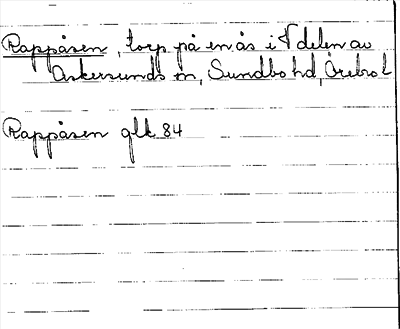 Rappåsen, torp på en ås i V delen av
Askersunds sn, Sundbo hd, Örebro L
Rappåsen glk 84